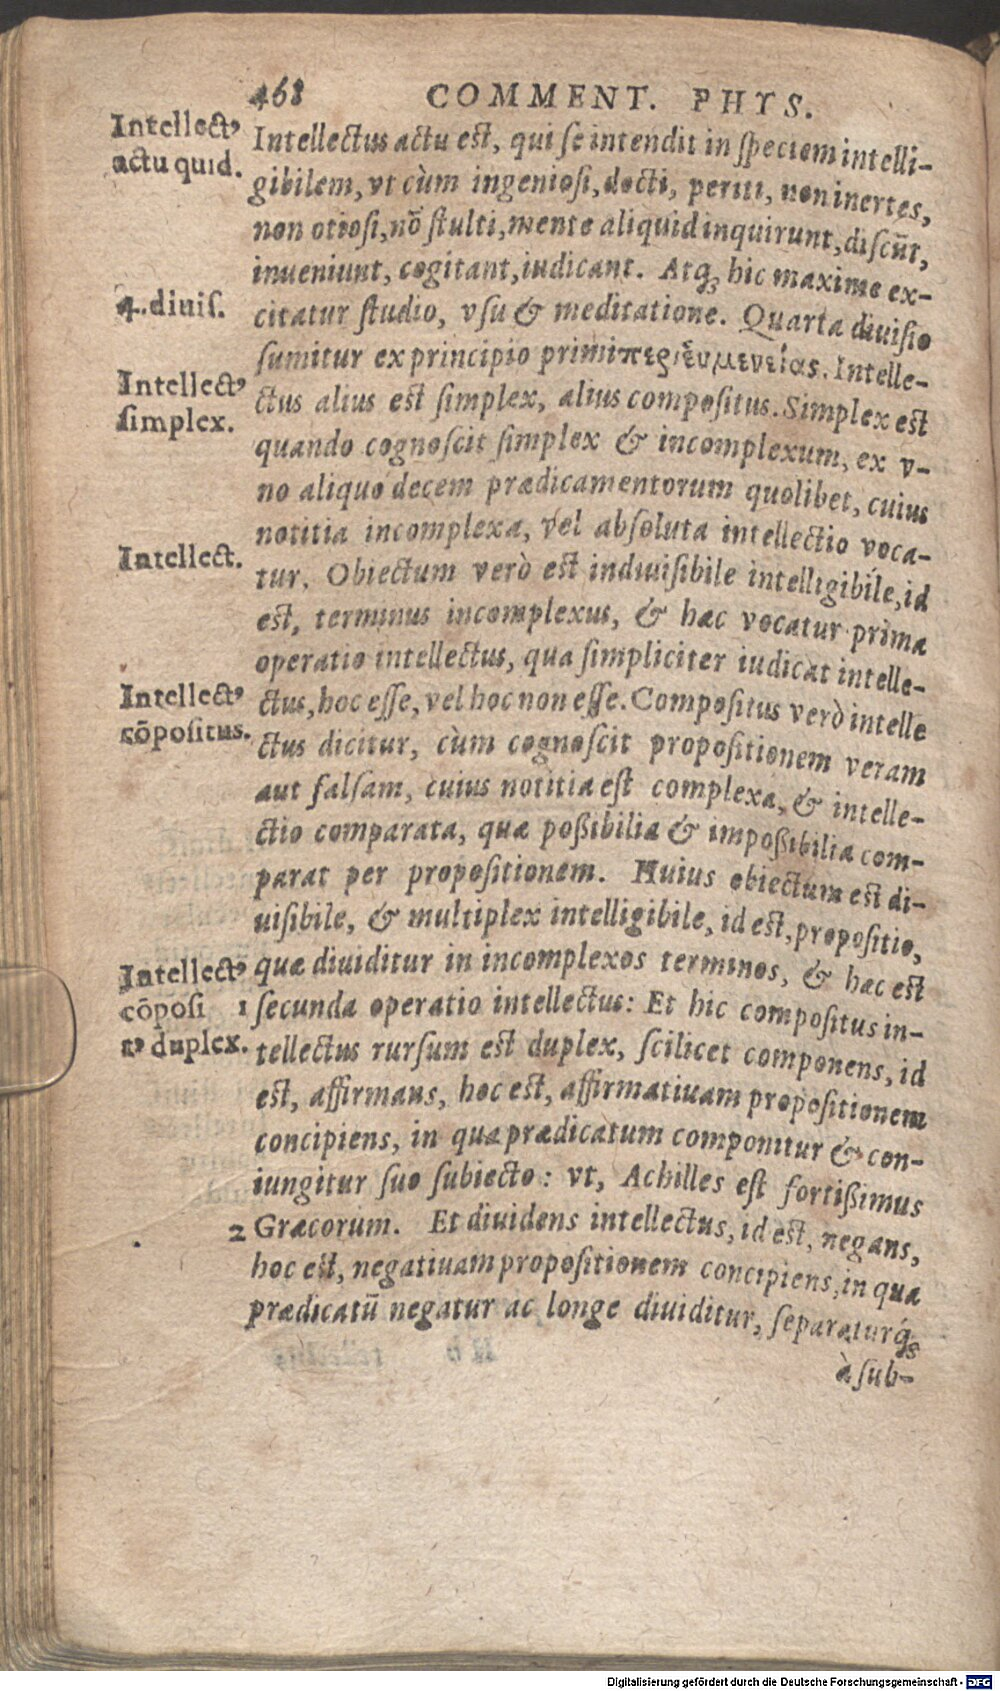 468 COMMENT. PHYS.
Intellectꝰ
actu quid.
Intellectus actu est, qui se intendit in speciem intelli-
gibilem, vt cùm ingeniosi, docti, periti, non inertes,
non otiosi, nõ stulti, mente aliquid inquirunt, discũt,
inueniunt, cogitant, iudicant. Atq; hic maxime ex-
4. diuis.
citatur studio, vsu & meditatione. Quarta diuisio
sumitur ex principio primi περὶ ἑρμενείας. Intelle-
Intellectꝰ
simplex.
ctus alius est simplex, alius compositus. Simplex est
quando cognoscit simplex & incomplexum, ex v-
no aliquo decem prædicamentorum quolibet, cuius
notitia incomplexa, vel absoluta intellectio voca-
Intellect.
tur. Obiectum verò est indiuisibile intelligibile, id
est, terminus incomplexus, & hæc vocatur prima
operatio intellectus, qua simpliciter iudicat intelle-
Intellectꝰ
cõpositus.
ctus, hoc esse, vel hoc non esse. Compositus verò intelle
ctus dicitur, cùm cognoscit propositionem veram
aut falsam, cuius notitia est complexa, & intelle-
ctio comparata, quæ possibilia & impossibilia com-
parat per propositionem. Huius obiectum est di-
uisibile, & multiplex intelligibile, id est, propositio,
Intellectꝰ
cõposi
tꝰ duplex.
quæ diuiditur in incomplexos terminos, & hæc est
1 secunda operatio intellectus: Et hic compositus in-
tellectus rursum est duplex, scilicet componens, id
est, affirmans, hoc est, affirmatiuam propositionem
concipiens, in qua prædicatum componitur & con-
iungitur suo subiecto: vt, Achilles est fortissimus
2 Græcorum. Et diuidens intellectus, id est, negans,
hoc est, negatiuam propositionem concipiens, in qua
prædicatũ negatur ac longe diuiditur, separaturq́;
à sub-
Digitalisierung gefördert durch die Deutsche Forschungsgemeinschaft - DFG